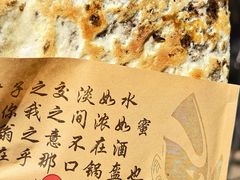 子之交淡如水
你我之间浓如蜜
翁之意不在酒
在乎那口锅盔也